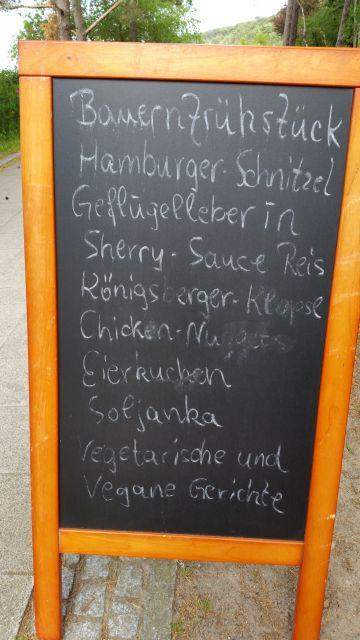 Bauernfrühstück
Hamburger-Schnitzel
Geflügelleber in
Sherry-Sauce Reis
Königsberger-Klopse
Chicken-Nuggets
Eierkuchen
Soljanka
Vegetarische und
Vegane Gerichte